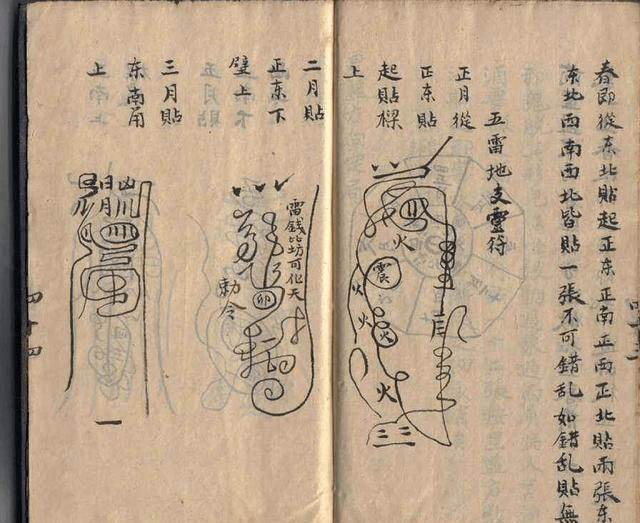 春即從东北貼起正东正南正西正北貼两張东
东北西南西北皆貼一張不可錯乱如錯乱貼無
五雷地支靈符
正月從
正东貼
起貼樑
上
火
震
火
火
火
火
二月貼
正东下
壁上
雷錢比坊可化天
卯
勅令
三月貼
东南角
上
日月
四十四